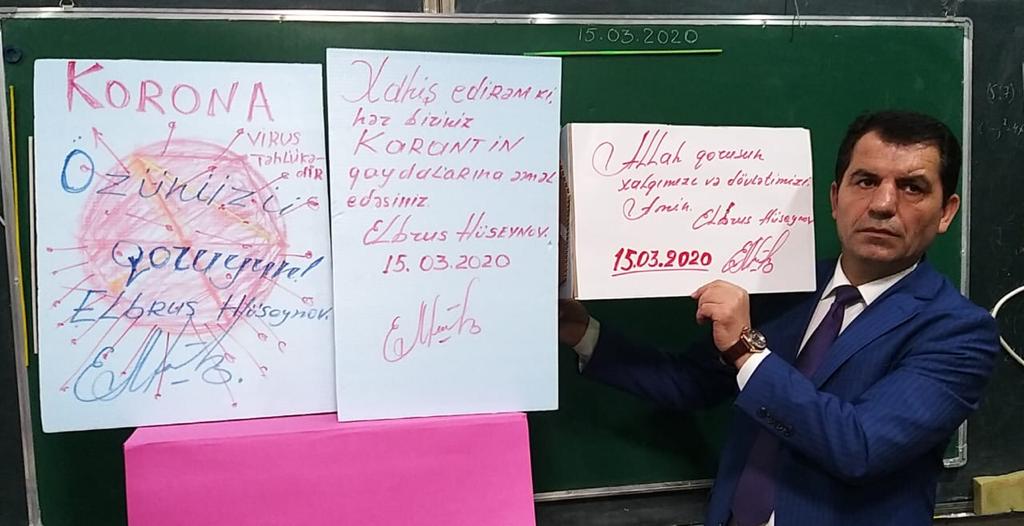 15.03.2020
KORONA
VIRUS
TƏHLÜKƏ-
DİR
Özünüzü
qoruyun!
ELbrus Hüseynov.
Xahiş edirəm ki,
hər biriniz
KARANTİN
qaydalarına əməl
edəsiniz.
ELbrus HÜSEYNOV.
15.03.2020
ALLah qorusun
xalqımızı və dövlətimizi.
Amin.
ELbrus Hüseynov
15.03.2020